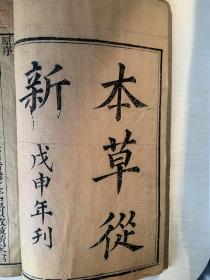 本草從
新
戊申年刊
原序